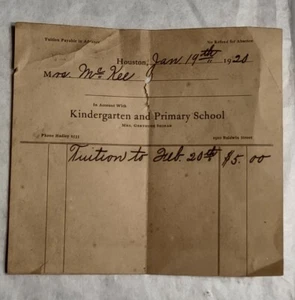 Tuition Payable in Advance
No Refund for Absence
Houston, Jan 19th 1920
Mrs. McKee
In Account With
Kindergarten and Primary School
Phone Hadley
Baldwin Street
Tuition to Feb. 20th $5.00